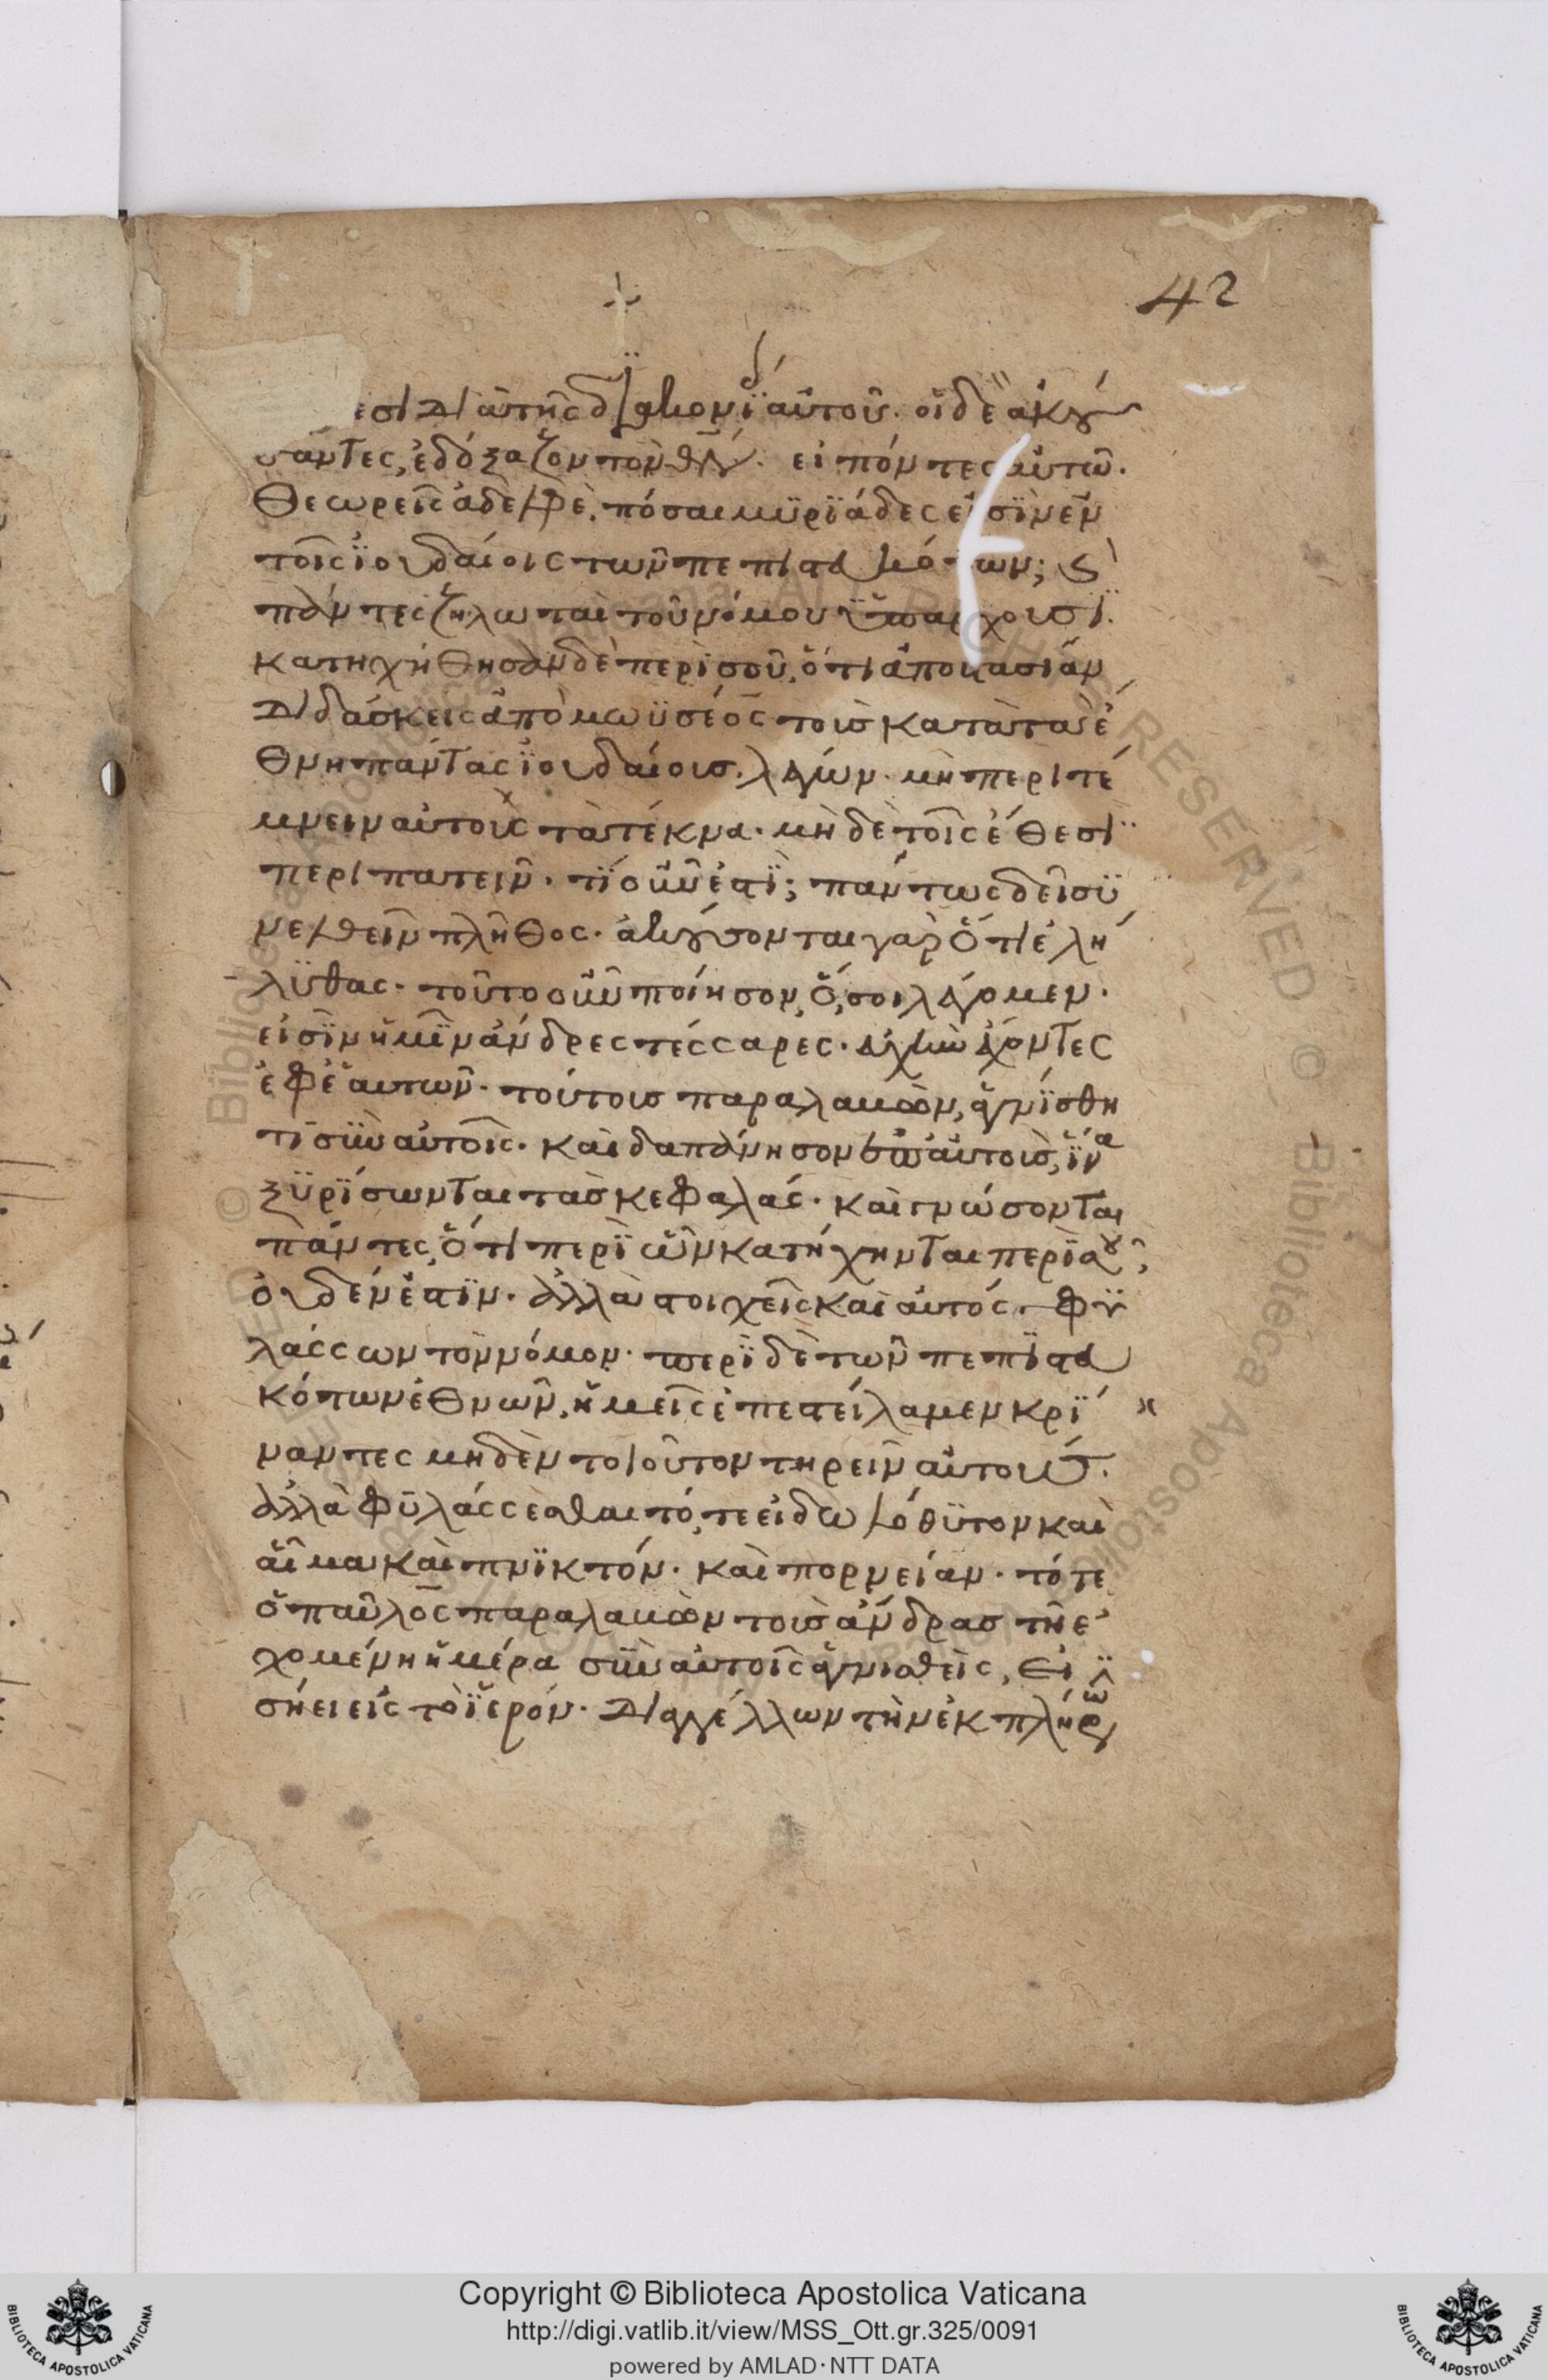 42
εσι διὰ τῆς διακονί αὐτοῦ. οἱ δὲ ἀκού
σαντες, ἐδόξαζον τὸν θν. εἰπόντες αὐτῶ.
Θεωρεῖς ἀδελφὲ, πόσαι μυριάδες εἰσὶν ἐν
τοῖς ἰουδαίοις τῶν πεπιστευκότων; καὶ
πάντες ζηλωταὶ τοῦ νόμου ὑπάρχουσϊ.
κατηχήθησαν δὲ περὶ σοῦ, ὅτι ἀποστασίαν
διδάσκεις ἀπὸ μωϋσέος τοὺς κατὰ τὰ ἔ
θνη πάντας ἰουδαίους. λέγων. μὴ περιτέ
μνειν αὐτοὺς τὰ τέκνα. μὴδὲ τοῖς ἔθεσϊ
περιπατεῖν. τί οὖν ἐστϊ; πάντως δεῖ συ
νελθεῖν πλῆθος. ἀκούσονται γὰρ ὅτι ἐλή
λϋθας. τοῦτο οὖν ποίησον, ὅ, σοι λέγομεν.
εἰσὶν ἡμῖν ἄνδρες τέσσαρες. εὐχὴν ἔχοντες
ἐφ' ἑαυτῶν. τούτους παραλαβὼν, ἁγνίσθη
τι σὺν αὐτοῖς. καὶ δαπάνησον σὺν αὐτοῖς, ἵνα
ξϋρίσωνται τὰς κεφαλάς. καὶ γνώσονται
πάντες, ὅτι περὶ ὧν κατήχηνται περὶ σοῦ,
οὐδέν ἐστϊν. ἀλλὰ στοιχεῖς καὶ αὐτός. φϋ
λάσσων τὸν νόμον. περὶ δὲ τῶν πεπϊστευ
κότων ἐθνῶν, ἡμεῖς ἐπεστείλαμεν κρί
ναντες μηδὲν τοιοῦτον τηρεῖν αὐτούς.
ἀλλὰ φϋλάσσεσθαι τό, τε εἰδωλόθϋτον καὶ
αἷμα καὶ πνϊκτόν. καὶ πορνείαν. τότε
ὁ παῦλος παραλαβὼν τοὺς ἄνδρας τῆ ἐ
χομένη ἡμέρα σὺν αὐτοῖς ἁγνισθεὶς, εἰ
σήει εἰς τὸ ἱερόν. διαγγέλλων τὴν ἐκπλήρω
Copyright © Biblioteca Apostolica Vaticana
http://digi.vatlib.it/view/MSS_Ott.gr.325/0091
powered by AMLAD·NTT DATA